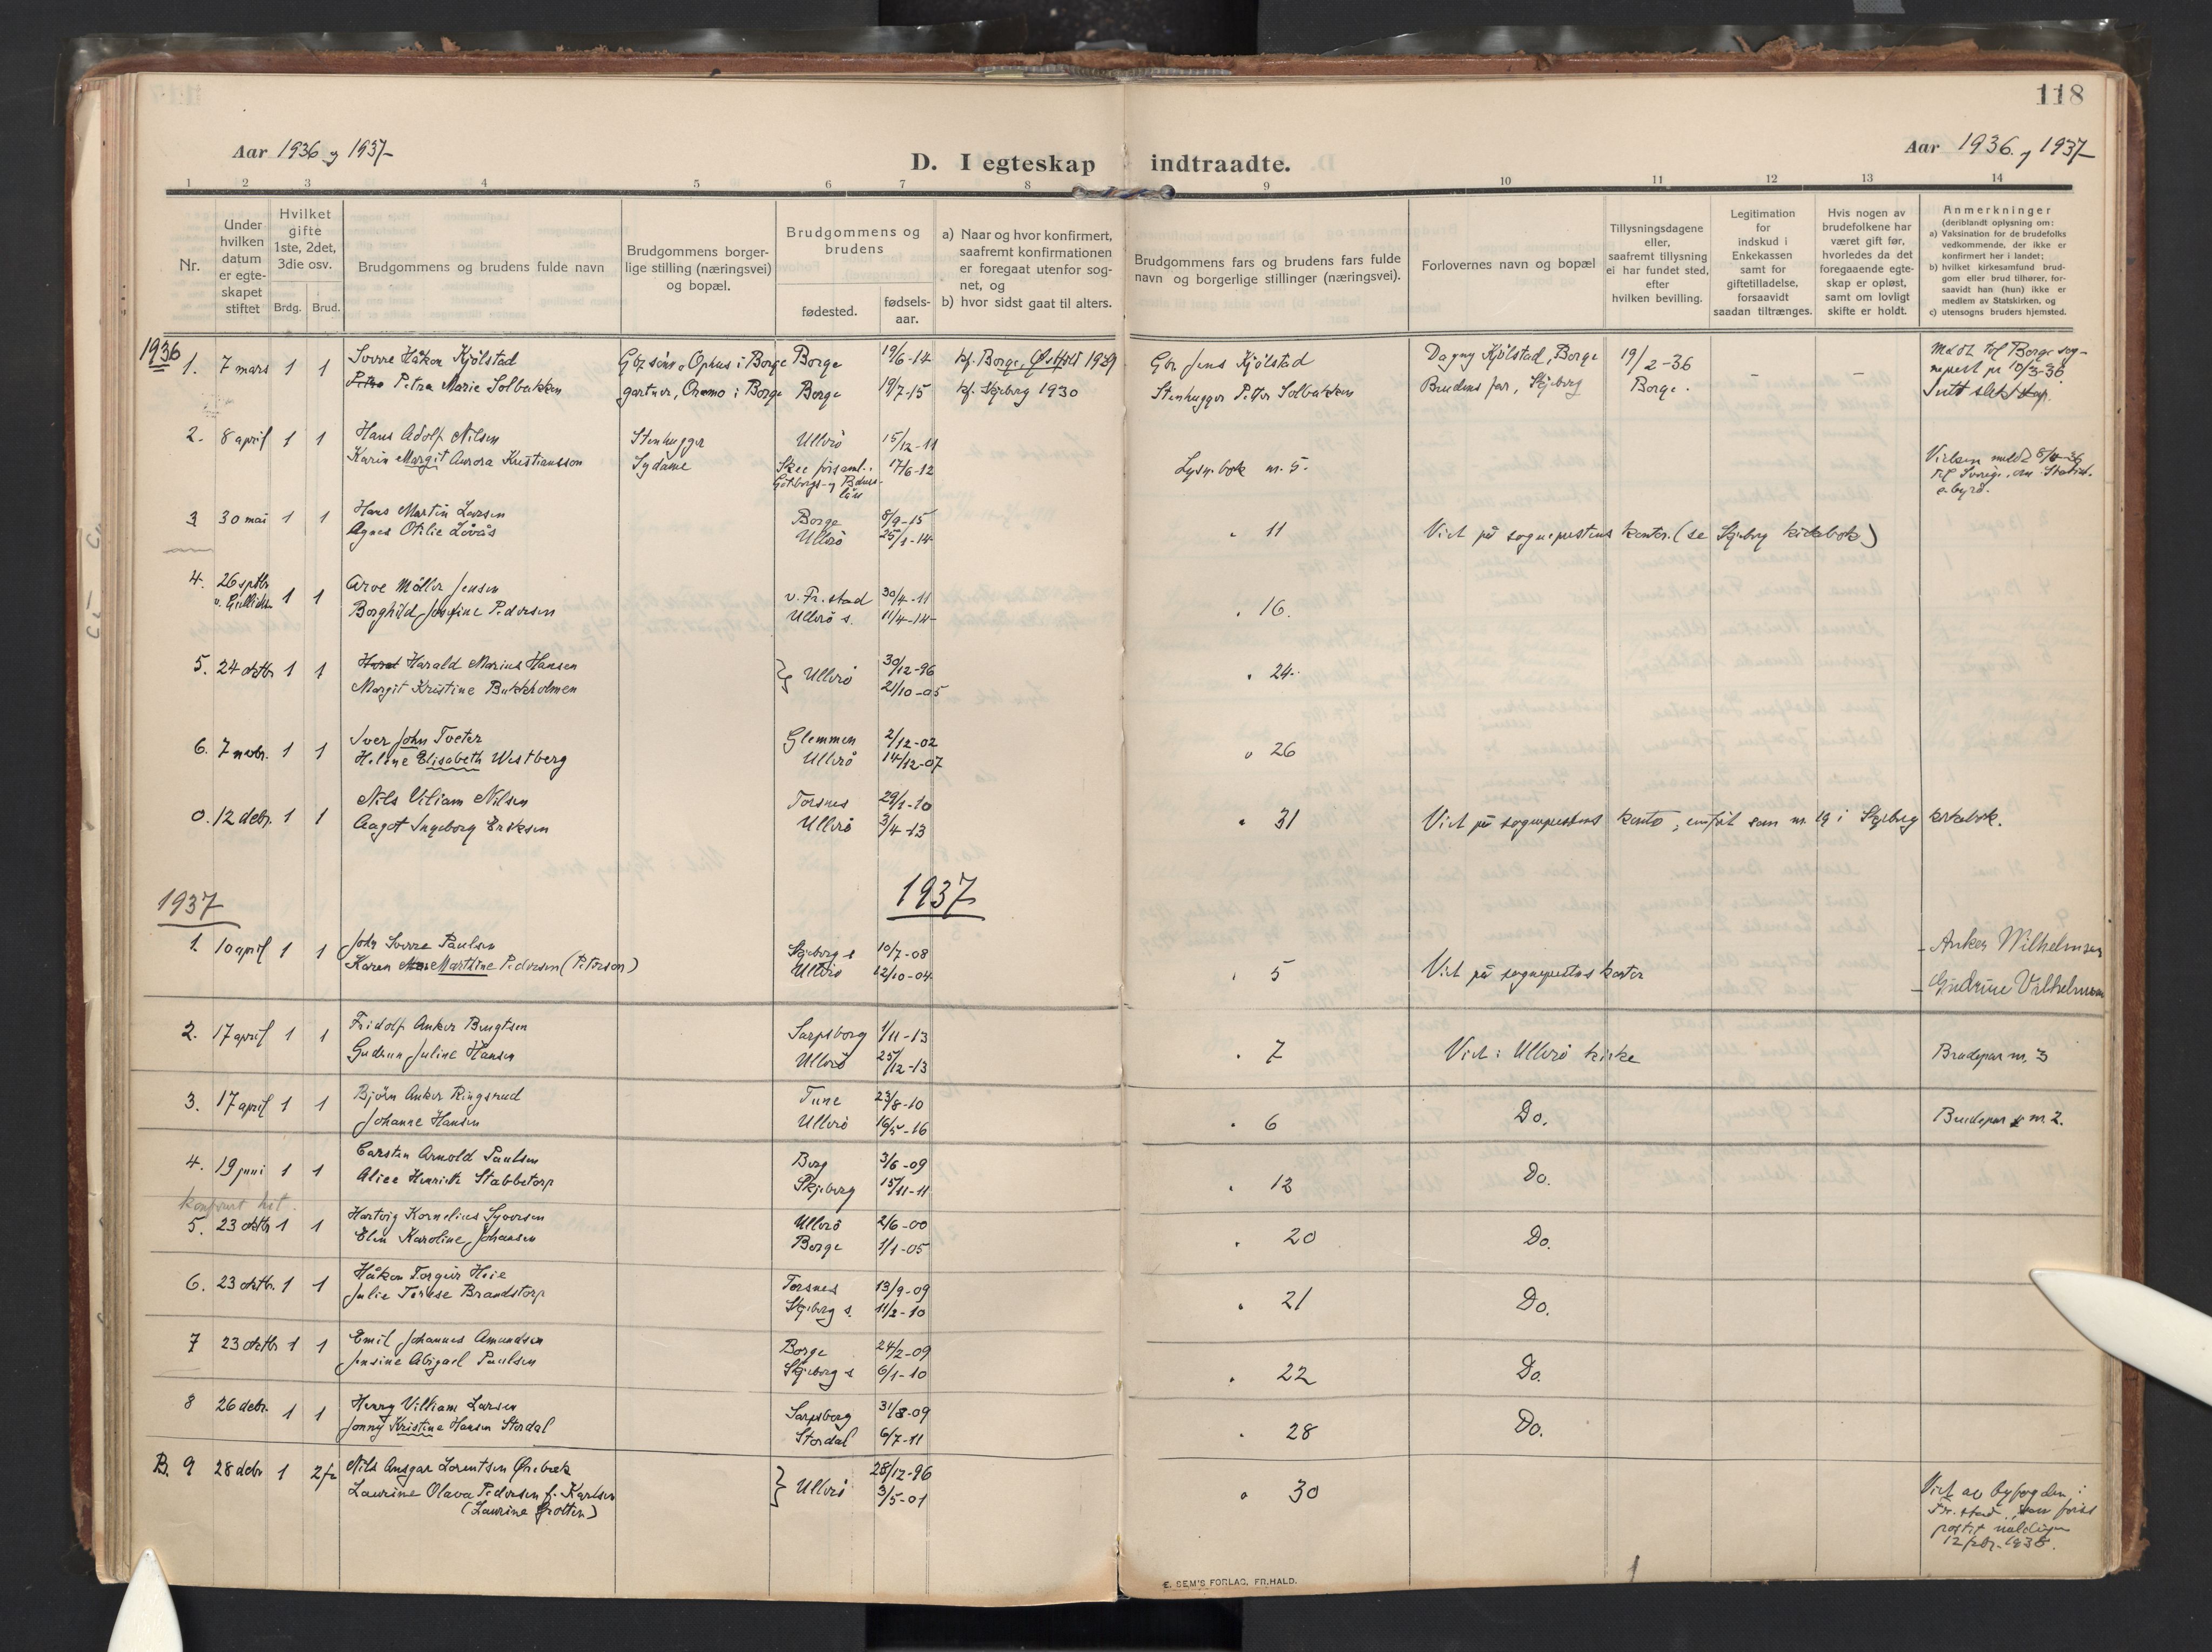 118
Aar 1936 og 1937
D. I egteskap indtraadte.
Aar 1936 og 1937
1 2 3 4 5 6 7 8 9 10 11 12 13 14
Nr.
Under hvilken datum er egte-skapet stiftet
Hvilket gifte 1ste, 2det, 3die osv.
Brdg. Brud.
Brudgommens og brudens fulde navn
Brudgommens borger-lige stilling (næringsvei) og bopæl.
Brudgommens og brudens
fødested. fødsels-aar.
a) Naar og hvor konfirmert, saafremt konfirmationen er foregaat utenfor sog-net, og
b) hvor sidst gaat til alters.
Brudgommens fars og brudens fars fulde navn og borgerlige stillinger (næringsvei).
Forlovernes navn og bopæl
Tillysningsdagene eller, saafremt tillysning ei har fundet sted, efter hvilken bevilling.
Legitimation for indskud i Enkekassen samt for giftetilladelse, forsaavidt saadan tiltrænges.
Hvis nogen av brudefolkene har været gift før, hvorledes da det foregaaende egte-skap er opløst, samt om lovligt skifte er holdt.
Anmerkninger
(deriblandt oplysning om:
a) Vaksination for de brudefolks vedkommende, der ikke er konfirmert her i landet;
b) hvilket kirkesamfund brud-gom eller brud tilhører, for-saavidt han (hun) ikke er medlem av Statskirken, og
c) utensogns bruders hjemsted.
1936
1. 7 mars 1 1 Sverre Håkon Kjölstad Gbr sönn, Ophus i Borge Borge 19/6-14 kf. Borge, Østfold 1929 Gbr Jens Kjölstad Dagny Kjölstad, Borge 19/2-36 - - Meldt til Borge sog-
Petra Marie Solbakken gartner, Oremo i Borge Borge 19/7-15 kf. Skjeberg 1930 Stenhugger Petter Solbakken Brudens far, Skjeberg Borge. neprest pr 10/3-36
Intet slektskap.
2. 8 april 1 1 Hans Adolf Nilsen Stenhugger Ullerö 15/12-11
Karin Margit Aurora Kristiansson Sydame Skee församl.. 17/6-12 Lysn.bok nr. 5. Vielsen meldt
Göteborgs- og Bohus-
län
3 30 mai 1 1 Hans Martin Larsen Borge 8/9-15
Agnes Otilie Lövås Ullerö 25/1-14 " 11 Viet på sogneprestens kontor. (se Skjeberg kirkebok)
4. 26 septbr 1 1 Arve Möller Jensen v. Fr.stad 30/4-11
Borghild Josefine Pedersen Ullerö s. 11/4-14 " 16.
5. 24 oktbr 1 1 Harald Marius Hansen } Ullerö 30/12-96 " 24.
Margit Kristine Bukkholmen 21/10-05
6. 7 novbr. 1 1 Iver John Tveter Glemmen 2/12-02 " 26
Helene Elisabeth Westberg Ullerö 14/12-07
0. 12 debr. 1 1 Nils Viliam Nilsen Torsnes 29/1-10
Aagot Ingeborg Eriksen Ullerö 3/4-13 " 31 Viet på sogneprestens kontor, innfört som nr. 19 i Skjeberg kirkebok.
1937 1937
1. 10 april 1 1 John Sverre Paulsen Skjeberg s 10/7-08 - Anker Wilhelmsen
Karen Marthine Pedersen (Peterson) Ullerö 12/10-04 " 5 Viet på sogneprestens kontor - Gudrun Vilhelmsen
2. 17 april 1 1 Fridolf Anker Bengtsen Sarpsborg 1/11-13
Gudrun Juline Hansen Ullerö 25/12-13 " 7 Viet i Ullerö kirke Brudepar nr. 3
3. 17 april 1 1 Björn Anker Ringsrud Tune 23/8-10
Johanne Hansen Ullerö 16/5-16 " 6 Do. Brudepar nr. 2.
4. 19 juni 1 1 Carsten Arnold Paulsen Berg 3/6-09
Alice Henriette Stabbetorp Skjeberg 15/11-11 " 12 Do.
konferert hit.
5. 23 oktbr 1 1 Hartvig Kornelius Syversen Ullerö 2/6-00
Elen Karoline Johansen Borge 1/1-05 " 20 Do.
6. 23 oktbr. 1 1 Håkon Torgeir Heie Torsnes 13/9-09
Julie Terese Brandstorp Skjeberg s. 11/2-10 " 21 Do.
7 23 oktbr 1 1 Emil Johannes Amundsen Borge 24/2-09
Jensine Abigael Paulsen Skjeberg s 6/1-10 " 22 Do.
8 26 debr. 1 1 Henry Villiam Larsen Sarpsborg 31/8-09
Jenny Kristine Hansen Stordal Stordal 6/7-11 " 28 Do.
B. 9 28 debr 1 2 Nils Ansgar Lorentsen Örebæk } Ullerö 28/12-96 " 30 Viet av byfogden i
Laurine Olava Pedersen f. Karlsen 3/5-01 Fr.stad
(Laurine Grotten)
E. SEM'S FORLAG, FR.HALD.